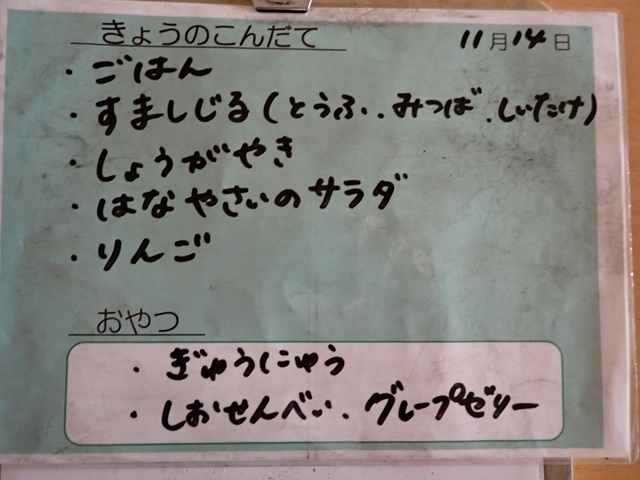 きょうのこんだて 11月14日
・ごはん
・すましじる(とうふ、みつば、しいたけ)
・しょうがやき
・はなやさいのサラダ
・りんご
おやつ
・ぎゅうにゅう
・しおせんべい、グレープゼリー